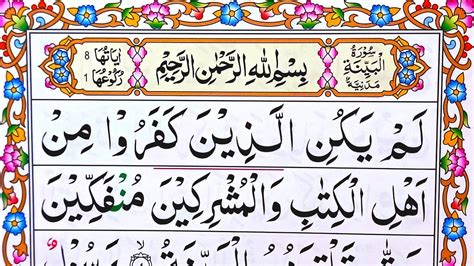 سُوْرَةُ الْبَيِّنَةِ مَدَنِيَّةٌ
بِسْمِ اللهِ الرَّحْمٰنِ الرَّحِيْمِ
اٰيَاتُهَا 8
رُكُوْعُهَا 1
لَمْ يَكُنِ الَّذِيْنَ كَفَرُوْا مِنْ
اَهْلِ الْكِتٰبِ وَالْمُشْرِكِيْنَ مُنْفَكِّيْنَ